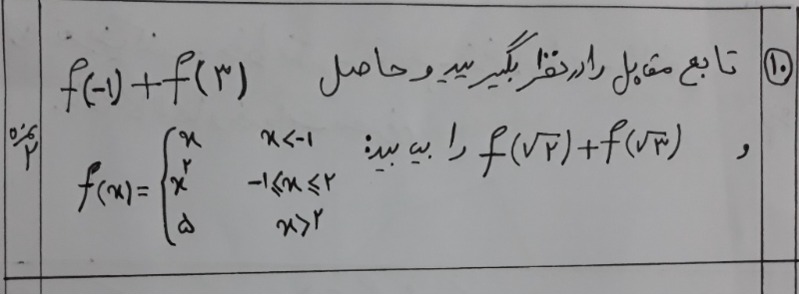 ۱۰ تابع مقابل را در نظر بگیرید و حاصل f(-1) + f(۳)
و f(√۲) + f(√۳) را بیابید:
f(x) = { x x < -1
x^۲ -1 ≤ x ≤ ۲
۵ x > ۲
۲ نمره